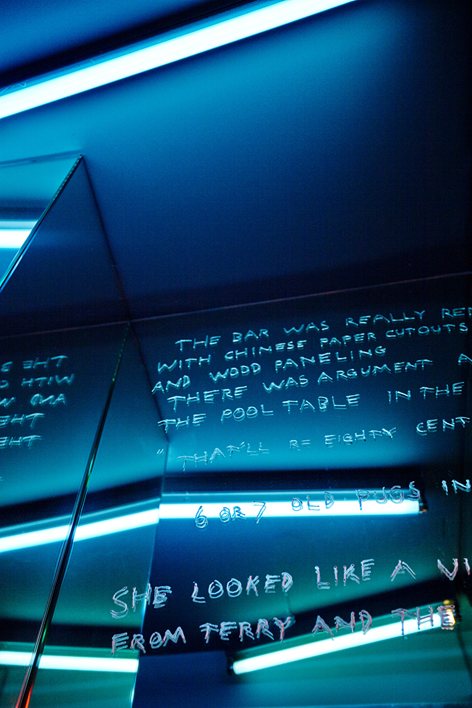 THE BAR WAS REALLY RED
WITH CHINESE PAPER CUTOUTS
AND WOOD PANELING
THERE WAS ARGUMENT A
THE POOL TABLE IN THE
"THAT'LL BE EIGHTY CENT
6 OR 7 OLD PUGS IN
SHE LOOKED LIKE A VI
FROM TERRY AND THE